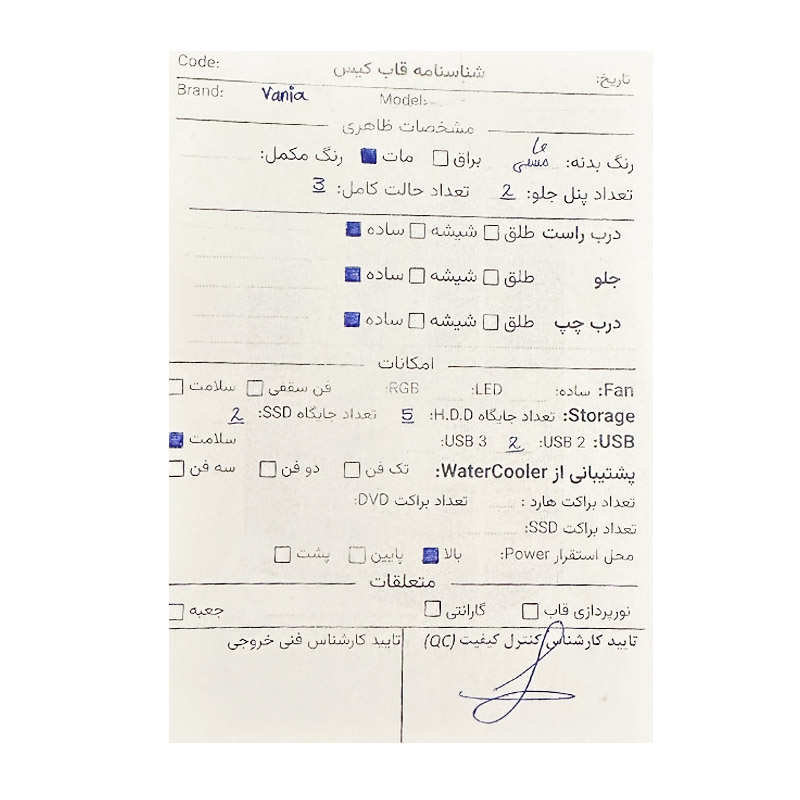 Code: شناسنامه قاب کیس تاریخ:
Brand: Vania Model:
مشخصات ظاهری
رنگ بدنه: مشکی براق مات رنگ مکمل:
تعداد پنل جلو: 2 تعداد حالت کامل: 3
درب راست طلق شیشه ساده
جلو طلق شیشه ساده
درب چپ طلق شیشه ساده
امکانات
Fan: ساده: LED: RGB: فن سقفی سلامت
Storage: تعداد جایگاه H.D.D: 5 تعداد جایگاه SSD: 2
USB: USB 2: 2 USB 3: سلامت
پشتیبانی از WaterCooler: تک فن دو فن سه فن
تعداد براکت هارد : تعداد براکت DVD:
تعداد براکت SSD:
محل استقرار Power: بالا پایین پشت
متعلقات
نورپردازی قاب گارانتی جعبه
تایید کارشناس کنترل کیفیت (QC) تایید کارشناس فنی خروجی